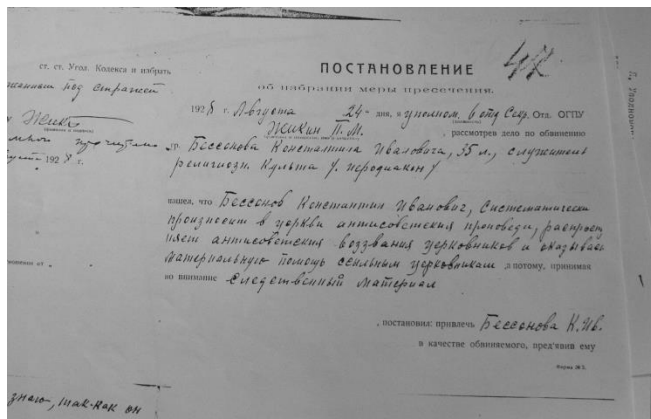 ст. ст. Угол. Кодекса и избрать
под стражей
Жик
192 8 г.
знаю, так-как он
ПОСТАНОВЛЕНИЕ
об избрании меры пресечения.
192 8 г. Августа 24- дня, я уполном. 6 отд Секр. Отд. ОГПУ
Жикин П.М. , рассмотрев дело по обвинению
гр. Бессонова Константина Ивановича, 35 л., служитель
религиозн. культа /иеродиакон/
нашел, что Бессонов Константин Иванович, систематически
произносит в церкви антисоветския проповеди, распрост
няет антисоветския воззвания церковников и оказывает
материальную помощь ссыльным церковникам а потому, принимая
во внимание следственный материал
, постановил: привлечь Бессонова К.Ив.
в качестве обвиняемого, пред'явив ему
Форма № 2.